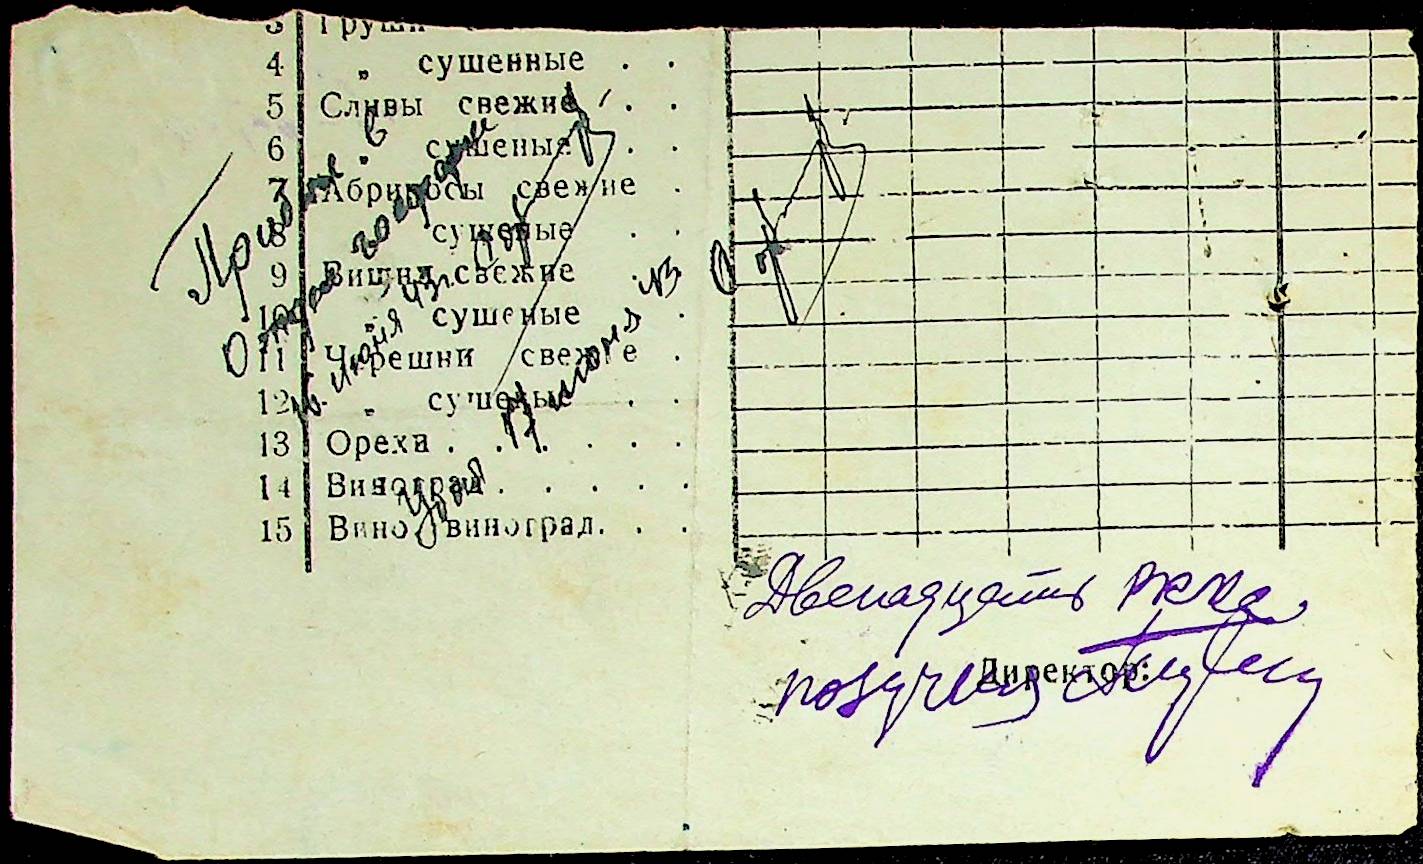 3 Груши
4 „ сушенные . .
5 Сливы свежие . .
6 „ сушеные . .
7 Абрикосы свежие .
8 сушеные . .
9 Вишни свежие .
10 „ сушеные .
11 Черешни свежие .
12 „ сушеные . .
13 Орехи . . . . . .
14 Виноград . . . . .
15 Вино виноград. . .
Прибыл в
Отдел
июня 43г.
июня 43
Убыл
Двенадцать
Директор:
получил